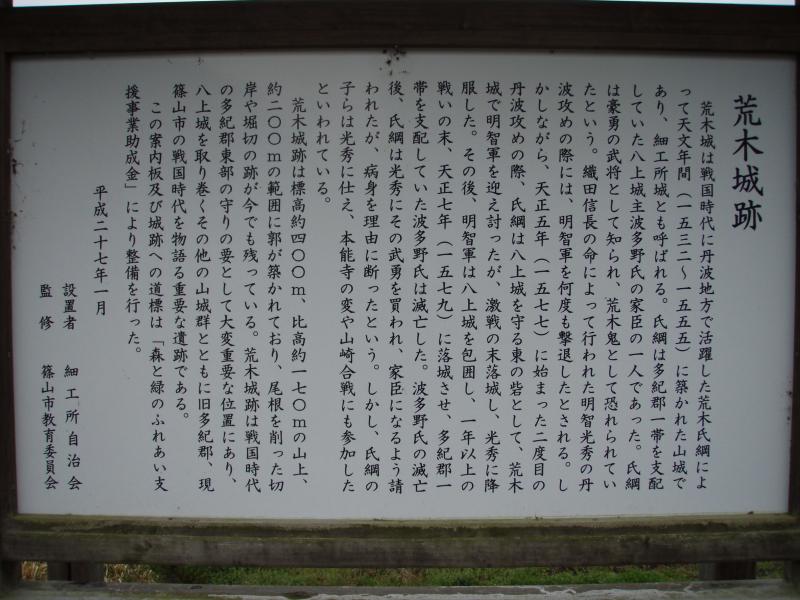 荒木城跡
荒木城は戦国時代に丹波地方で活躍した荒木氏綱によ
って天文年間（一五三二～一五五五）に築かれた山城で
あり、細工所城とも呼ばれる。氏綱は多紀郡一帯を支配
していた八上城主波多野氏の家臣の一人であった。氏綱
は豪勇の武将として知られ、荒木鬼として恐れられてい
たという。織田信長の命によって行われた明智光秀の丹
波攻めの際には、明智軍を何度も撃退したとされる。し
かしながら、天正五年（一五七七）に始まった二度目の
丹波攻めの際、氏綱は八上城を守る東の砦として、荒木
城で明智軍を迎え討ったが、激戦の末落城し、光秀に降
服した。その後、明智軍は八上城を包囲し、一年以上の
戦いの末、天正七年（一五七九）に落城させ、多紀郡一
帯を支配していた波多野氏は滅亡した。波多野氏の滅亡
後、氏綱は光秀にその武勇を買われ、家臣になるよう請
われたが、病身を理由に断ったという。しかし、氏綱の
子らは光秀に仕え、本能寺の変や山崎合戦にも参加した
といわれている。
荒木城跡は標高約四〇〇ｍ、比高約一七〇ｍの山上、
約二〇〇ｍの範囲に郭が築かれており、尾根を削った切
岸や堀切の跡が今でも残っている。荒木城跡は戦国時代
の多紀郡東部の守りの要として大変重要な位置にあり、
八上城を取り巻くその他の山城群とともに旧多紀郡、現
篠山市の戦国時代を物語る重要な遺跡である。
この案内板及び城跡への道標は「森と緑のふれあい支
援事業助成金」により整備を行った。
平成二十七年一月
設置者　細工所自治会
監修　篠山市教育委員会